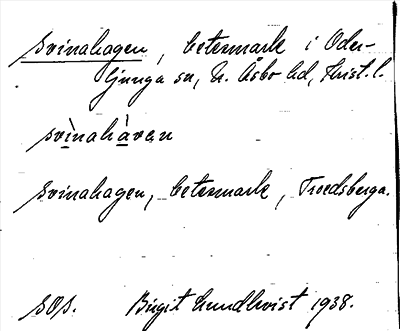 Svinahagen, betesmark i Oder-
ljunga sn, N. Åsbo hd, Krist. l.
svìnahàvan
Svinahagen, betesmark, Troedsberga.
sos. Birgit Lundkvist 1938.